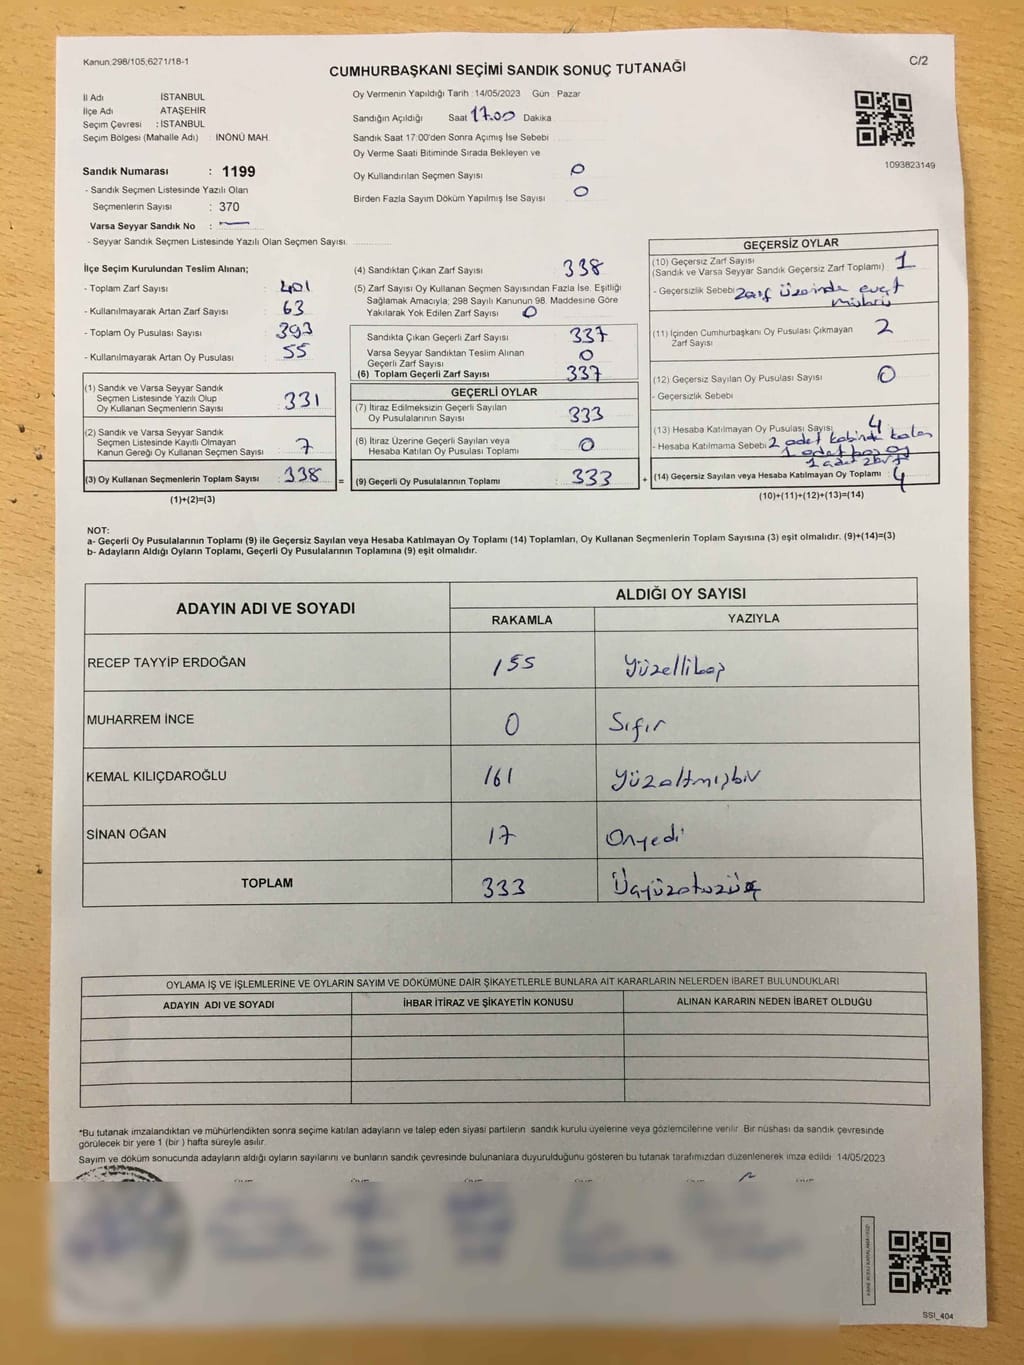 Kanun:298/105;6271/18-1
C/2
CUMHURBAŞKANI SEÇİMİ SANDIK SONUÇ TUTANAĞI
İl Adı İSTANBUL
İlçe Adı ATAŞEHİR
Seçim Çevresi : İSTANBUL
Seçim Bölgesi (Mahalle Adı) : İNÖNÜ MAH.
Sandık Numarası : 1199
- Sandık Seçmen Listesinde Yazılı Olan
Seçmenlerin Sayısı : 370
Varsa Seyyar Sandık No :
- Seyyar Sandık Seçmen Listesinde Yazılı Olan Seçmen Sayısı:
Oy Vermenin Yapıldığı Tarih : 14/05/2023 Gün : Pazar
Sandığın Açıldığı Saat 17.00 Dakika
Sandık Saat 17:00'den Sonra Açımış İse Sebebi
Oy Verme Saati Bitiminde Sırada Bekleyen ve
Oy Kullandırılan Seçmen Sayısı 0
Birden Fazla Sayım Döküm Yapılmış İse Sayısı 0
1093823149
İlçe Seçim Kurulundan Teslim Alınan;
- Toplam Zarf Sayısı : 401
- Kullanılmayarak Artan Zarf Sayısı : 63
- Toplam Oy Pusulası Sayısı : 393
- Kullanılmayarak Artan Oy Pusulası : 55
(1) Sandık ve Varsa Seyyar Sandık
Seçmen Listesinde Yazılı Olup
Oy Kullanan Seçmenlerin Sayısı : 331
(2) Sandık ve Varsa Seyyar Sandık
Seçmen Listesinde Kayıtlı Olmayan
Kanun Gereği Oy Kullanan Seçmen Sayısı : 7
(3) Oy Kullanan Seçmenlerin Toplam Sayısı : 338 =
(1)+(2)=(3)
(4) Sandıktan Çıkan Zarf Sayısı 338
(5) Zarf Sayısı Oy Kullanan Seçmen Sayısından Fazla İse, Eşitliği
Sağlamak Amacıyla; 298 Sayılı Kanunun 98. Maddesine Göre
Yakılarak Yok Edilen Zarf Sayısı : 0
Sandıkta Çıkan Geçerli Zarf Sayısı : 337
Varsa Seyyar Sandıktan Teslim Alınan
Geçerli Zarf Sayısı : 0
(6) Toplam Geçerli Zarf Sayısı : 337
GEÇERLİ OYLAR
(7) İtiraz Edilmeksizin Geçerli Sayılan
Oy Pusulalarının Sayısı : 333
(8) İtiraz Üzerine Geçerli Sayılan veya
Hesaba Katılan Oy Pusulası Toplamı : 0
(9) Geçerli Oy Pusulalarının Toplamı : 333 +
GEÇERSİZ OYLAR
(10) Geçersiz Zarf Sayısı
(Sandık ve Varsa Seyyar Sandık Geçersiz Zarf Toplamı) : 1
- Geçersizlik Sebebi: zarf üzerinde evet
mührü
(11) İçinden Cumhurbaşkanı Oy Pusulası Çıkmayan
Zarf Sayısı 2
(12) Geçersiz Sayılan Oy Pusulası Sayısı : 0
- Geçersizlik Sebebi
(13) Hesaba Katılmayan Oy Pusulası Sayısı : 4
- Hesaba Katılmama Sebebi: 2 adet kabinde kalan
1 adet boş oy
1 adet zarf
(14) Geçersiz Sayılan veya Hesaba Katılmayan Oy Toplamı : 4
(10)+(11)+(12)+(13)=(14)
NOT:
a- Geçerli Oy Pusulalarının Toplamı (9) ile Geçersiz Sayılan veya Hesaba Katılmayan Oy Toplamı (14) Toplamları, Oy Kullanan Seçmenlerin Toplam Sayısına (3) eşit olmalıdır. (9)+(14)=(3)
b- Adayların Aldığı Oyların Toplamı, Geçerli Oy Pusulalarının Toplamına (9) eşit olmalıdır.
ADAYIN ADI VE SOYADI ALDIĞI OY SAYISI
RAKAMLA YAZIYLA
RECEP TAYYİP ERDOĞAN 155 Yüzellibeş
MUHARREM İNCE 0 Sıfır
KEMAL KILIÇDAROĞLU 161 Yüzaltmışbir
SİNAN OĞAN 17 Onyedi
TOPLAM 333 Üçyüzotuzüç
OYLAMA İŞ VE İŞLEMLERİNE VE OYLARIN SAYIM VE DÖKÜMÜNE DAİR ŞİKAYETLERLE BUNLARA AİT KARARLARIN NELERDEN İBARET BULUNDUKLARI
ADAYIN ADI VE SOYADI İHBAR İTİRAZ VE ŞİKAYETİN KONUSU ALINAN KARARIN NEDEN İBARET OLDUĞU
*Bu tutanak imzalandıktan ve mühürlendikten sonra seçime katılan adayların ve talep eden siyasi partilerin sandık kurulu üyelerine veya gözlemcilerine verilir. Bir nüshası da sandık çevresinde
görülecek bir yere 1 (bir ) hafta süreyle asılır.
Sayım ve döküm sonucunda adayların aldığı oyların sayılarını ve bunların sandık çevresinde bulunanlara duyurulduğunu gösteren bu tutanak tarafımızdan düzenlenerek imza edildi. 14/05/2023
SSI_404